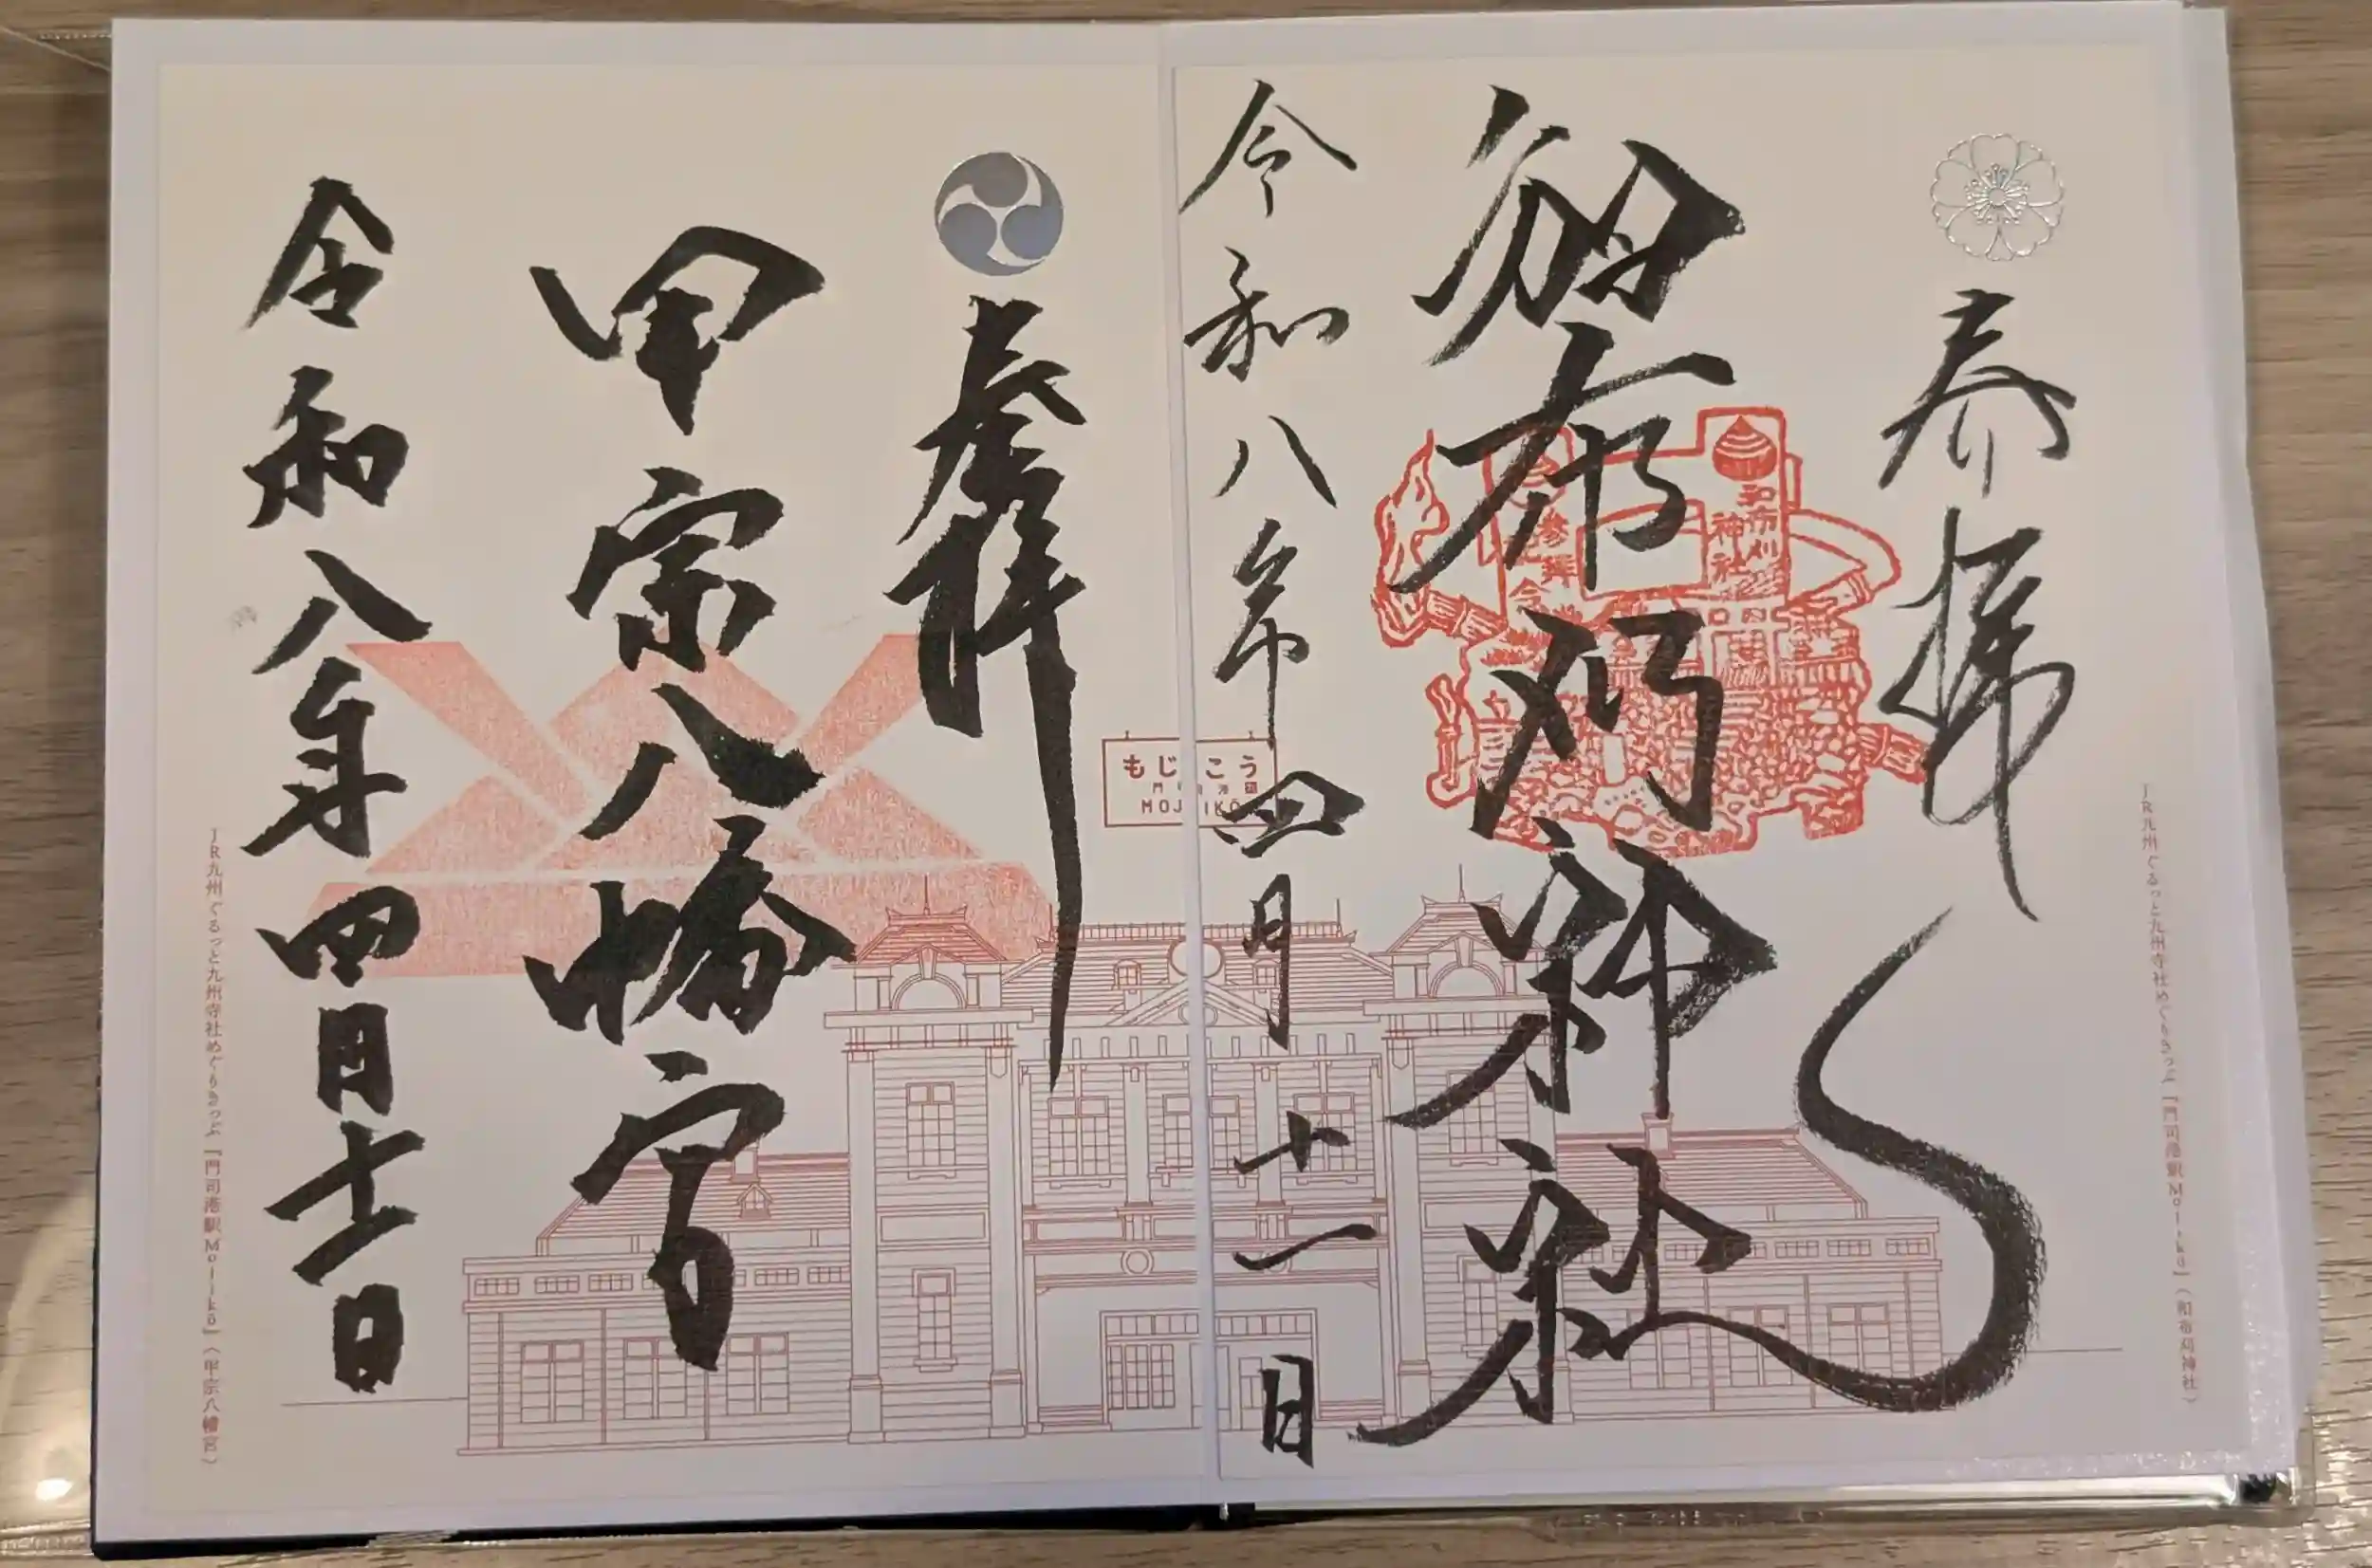 奉拝
和布刈神社
令和八年四月十一日
和布刈
神社
参拝
もじこう
MOJIKŌ
JR九州ぐるっと九州寺社めぐりきっぷ『門司港駅 Mojikō』(和布刈神社)
奉拝
甲宗八幡宮
令和八年四月十一日
JR九州ぐるっと九州寺社めぐりきっぷ『門司港駅 Mojikō』(甲宗八幡宮)